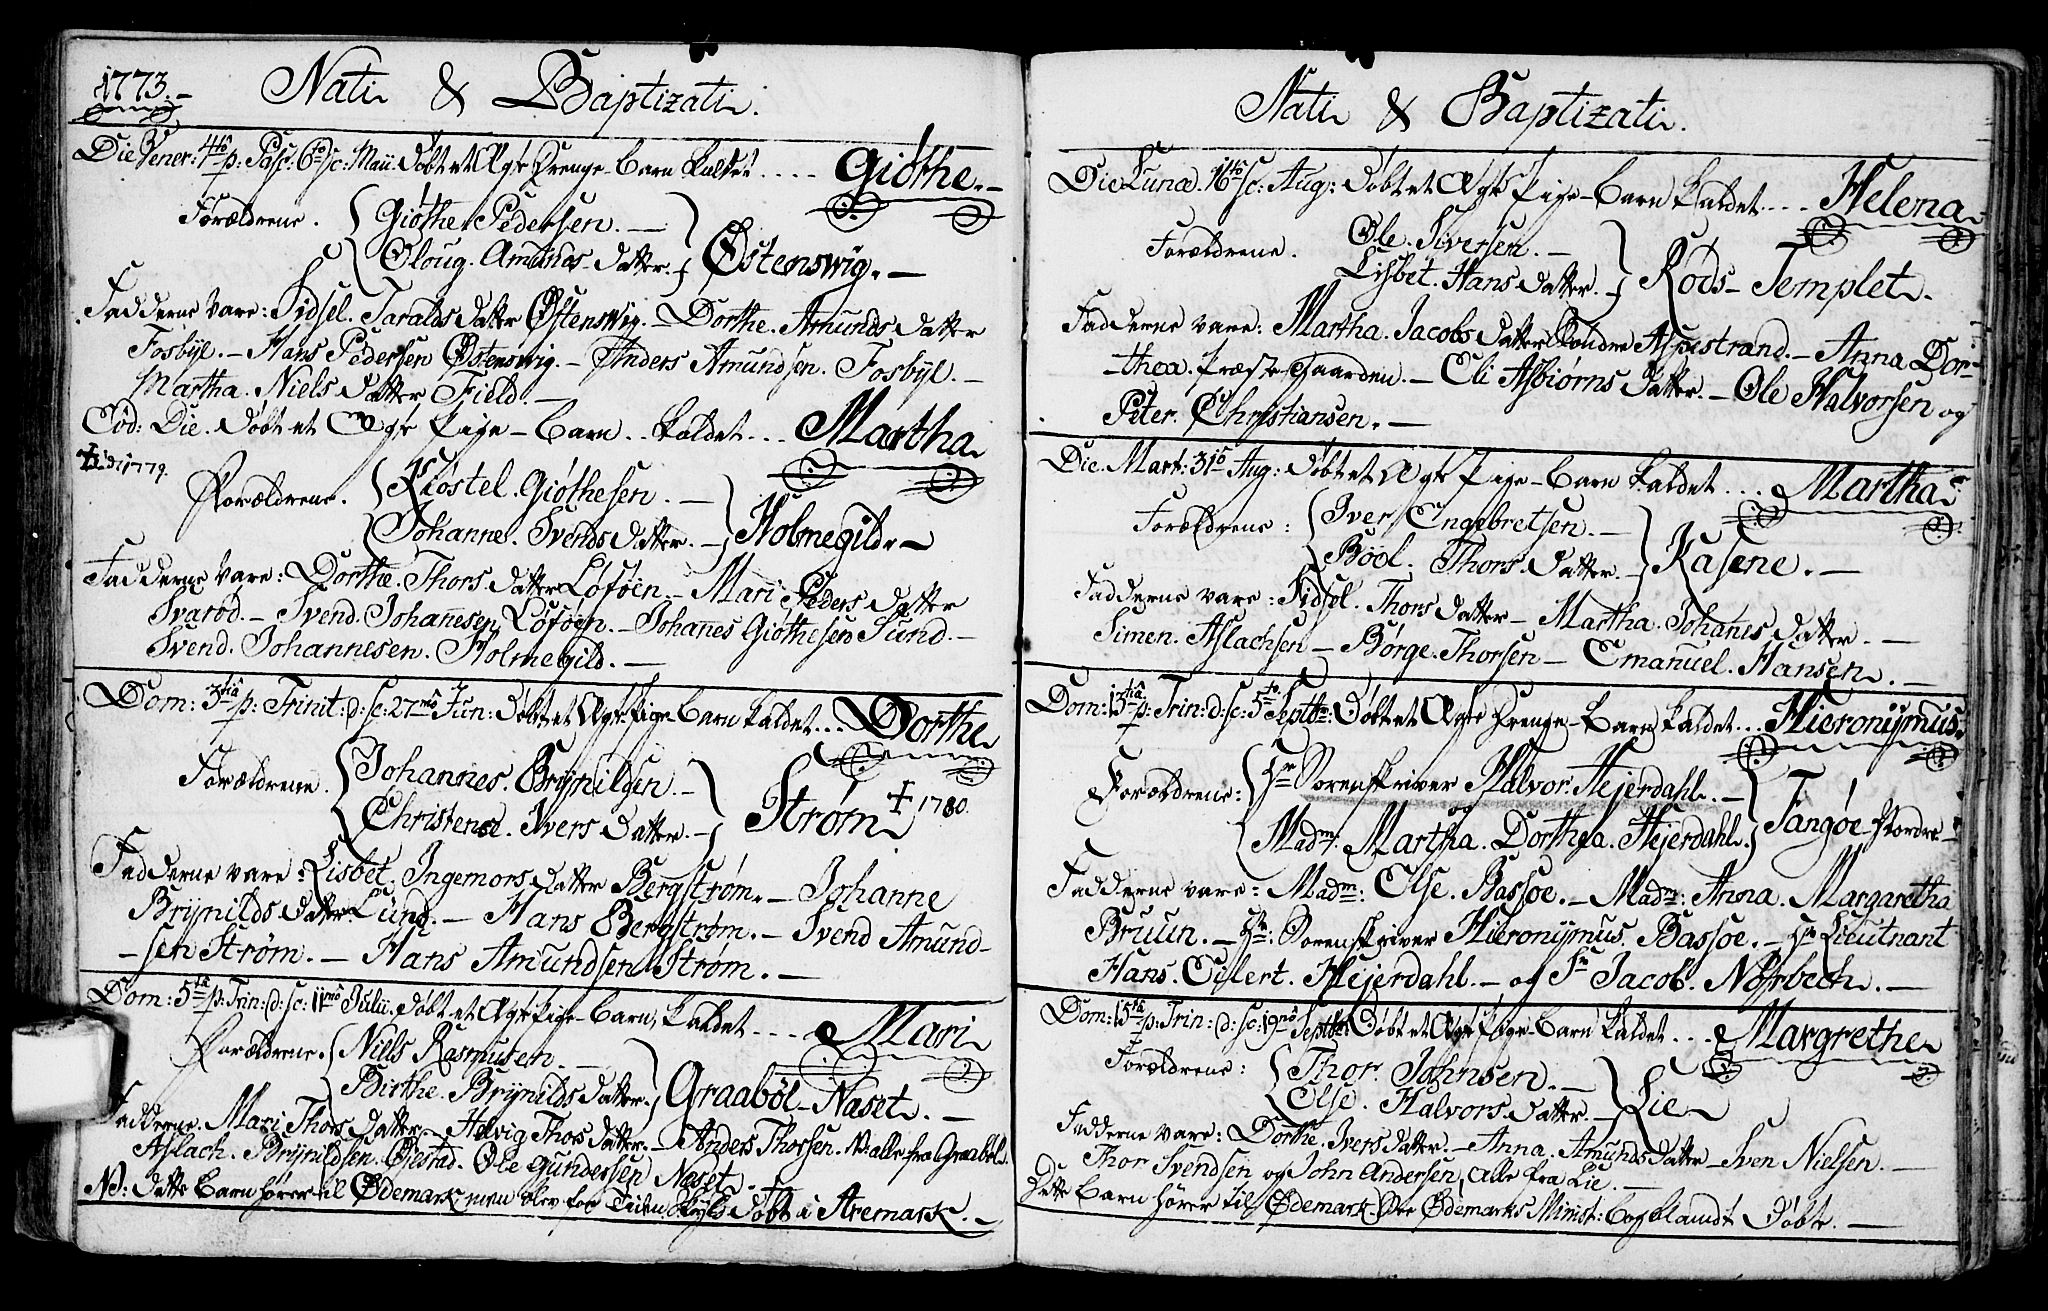 1773.
Nati & Baptizati.
Die Vener: 4to p: Pasc: 6to sc: Maii døbt et Ægte Drenge-Barn kaldet .... Giøthe.
Forældrene. Giøthe Pedersen.
Oloug. Amunds datter. Østenswig.
Fadderne vare: Sidsel. Taralds datter Østenswig. Dorthe. Amunds datter
Fosbÿl. Hans Pedersen Østenswig. Anders Amundsen. Fosbÿl.
Martha. Niels datter Field.
Eod: Die. døbt et Ægte Pige-Barn .. kaldet ... Martha
1779.
Forældrene. Kiøstel. Giøthesen.
Johanne. Svends datter. Holmegild.
Fadderne vare: Dorthe. Thors datter Løføen. Mari Peders datter
Svarød. Svend. Johannesen Løføen. Johannes Giøthesen Sund.
Svend. Johannesen. Holmegild.
Dom: 3tia p: Trinit: d: sc: 27mo Jun: døbt et Ægte Pige-Barn kaldet ... Dorthe
Forældrene. Johannes. Brÿnildsen.
Christense. Ivers datter. Strøm † 1780.
Fadderne vare: Lisbet. Ingemors datter Bergstrøm. Johanne
Brÿnilds datter Lund. Hans Bergstrøm. Svend Amund-
sen Strøm. Hans Amundsen Strøm.
Dom: 5ta p: Trin: d: sc: 11mo Julii. døbt et Ægte Pige-Barn, kaldet .... Mari
Forældrene. Niels Rasmusen
Birthe. Brÿnilds datter. Graabøl-Næset.
Fadderne. Mari Thors datter Helvig Thors datter. Anders Thorsen. N: alle fra Graabøl.
Aslach. Brÿnildsen. Øiestad. Ole Gundersen Næset.
NB: dette Barn hører til Ødemark men blev for Tiden Skyld døbt i Aremark.
Nati & Baptizati.
Die Lunæ. 16to sc: Aug: døbt et Ægte Pige-Barn kaldet .... Helena
Forældrene. Ole. Siversen.
Lisbet. Hans datter. Røds-Templet.
Fadderne vare: Martha. Jacobs datter Søndre Aspestrand. Anna Dor-
thea. Præste-Gaarden. Eli Asbiørns datter. Ole Halvorsen og
Peter. Christiansen.
Die. Mart: 31to Aug: døbt et Ægte Pige-Barn kaldet ... Martha
Forældrene: Iver Engebretsen.
Boel. Thors datter. Kasene.
Fadderne vare: Sidsel. Thors datter Martha. Johanes datter.
Simen. Aslachsen Børge. Thorsen Emanuel. Hansen.
Dom: 13tia p: Trin: d: sc: 5to Septbr: døbt et Ægte Drenge-Barn kaldet ... Hieronÿmus
Forældrene: Hr Sorenskriver Halvor. Hejerdahl.
og
Madm: Martha. Dorthea. Hejerdahl. Tangøe-Nordre
Fadderne vare: Madm: Else. Bassøe. Madm: Anna. Margaretha
Bruun. Hr: Sorenskriver Hieronÿmus. Bassøe. Hr Lieutnant
Hans. Eilert. Hejerdahl. og Sr Jacob. Nørbech.
Dom: 15ta p: Trin: d: sc: 19no Septbr: døbt et Ægte Pige-Barn kaldet ... Margrethe
Forældrene: Thor. Johnsen.
Else. Halvors. datter. Lie
Fadderne vare: Dorthe. Ivers datter. Anna. Amunds datter Sven Nielsen.
Thor Svendsen og John Andersen, alle fra Lie.
Dette Barn hører til Ødemark See Ødemarks Minist: Bog blandt døbte.